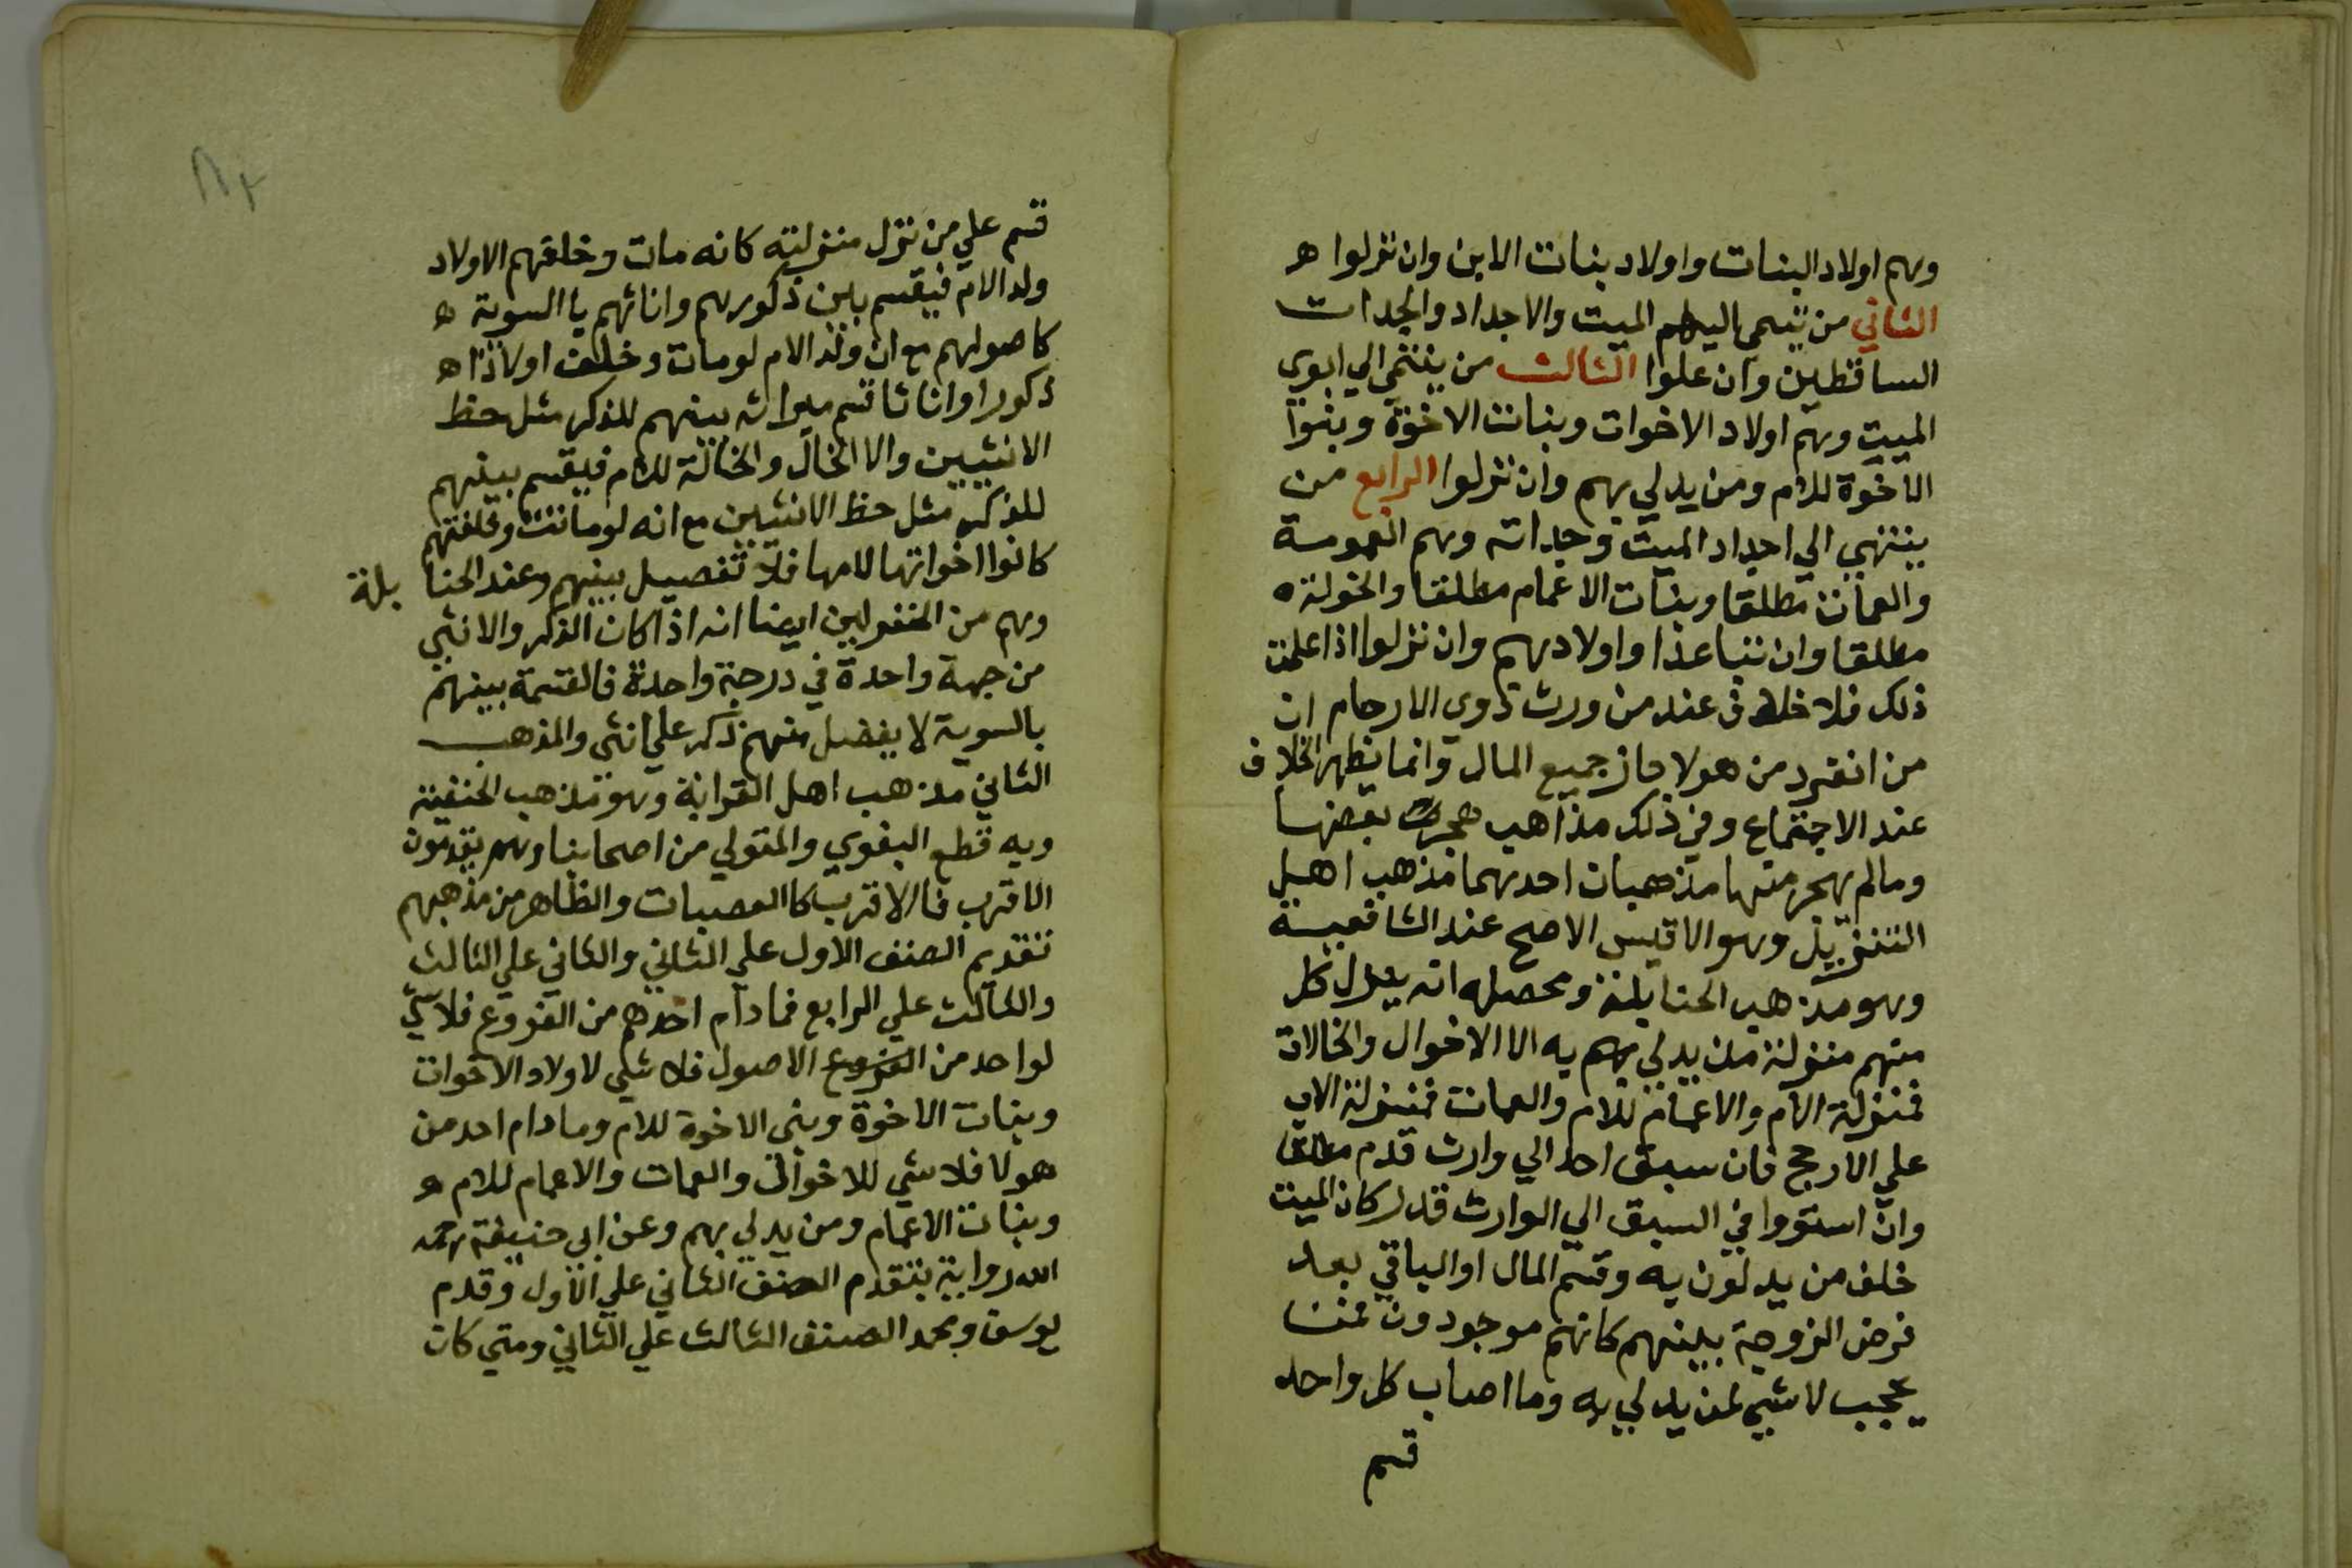 وهم اولاد البنات واولاد بنات الابن وان نزلوا ه
الثاني من ينتمي اليهم الميت والاجداد والجدات
الساقطين وان علوا الثالث من ينتمي الي ابوي
الميت وهم اولاد الاخوات وبنات الاخوة وبنوا
الاخوة للام ومن يدلي بهم وان نزلوا الرابع من
ينتهي الي اجداد الميت وجداته وهم العمومة
والعمات مطلقا وبنات الاعمام مطلقا والخولة ه
مطلقا وان تباعدا واولادهم وان نزلوا اذا علمت
ذلك فلا خلاف عند من ورث ذوي الارحام ان
من انفرد من هولا حاز جميع المال وانما يظهر الخلاف
عند الاجتماع وفي ذلك مذاهب هجرت بعضها
ومالم يهجر منها مذهبان احدهما مذهب اهل
التنزيل وهو الاقيس الاصح عند الشافعية
وهو مذهب الحنابلة ومحصله انه ينزل كل
منهم منزلة من يدلي بهم به الا الاخوال والخالات
فمنزلة الام والاعمام للام والعمات فمنزلة الاب
علي الارجح فان سبق احد الي وارث قدم مطلقا
وان استووا في السبق الي الوارث قدر كان الميت
خلف من يدلون به وقسم المال او الباقي بعد
فرض الزوجية بينهم كانهم موجودون فمن
يحجب لا شي لمن يدلي به وما اصاب كل واحد
قسم
قسم علي من نزل منزلته كانه مات وخلفهم الا ولاد
ولد الام فيقسم بين ذكورهم واناثهم يا السوية ه
كاصولهم مع ان ولد الام لو مات وخلف اولادا ه
ذكورا واناثا قسم ميراثه بينهم للذكر مثل حظ
الانثيين والا الخال والخالة للام فيقسم بينهم
للذكر مثل حظ الانثيين مع انه لو ماتت وخلفتهم
كانوا اخواتها لامها فلا تفصيل بينهم وعند الحنا بلة
وهم من المنزلين ايضا انه اذا كان الذكر والانثي
من جهة واحدة في درجة واحدة فالقسمة بينهم
بالسوية لا يفضل منهم ذكر علي انثي والمذهب
الثاني مذهب اهل القرابة وهو مذهب الحنفية
وبه قطع البغوي والمتولي من اصحابنا وهم يقدمون
الاقرب فالاقرب كا العصبات والظاهر من مذهبهم
تقديم الصنف الاول علي الثاني والثاني علي الثالث
والثالث علي الرابع فما دام احدهم من الفروع فلا شي
لواحد من الفروع الاصول فلا شي لاولاد الاخوات
وبنات الاخوة وبني الاخوة للام وما دام احد من
هولا فلا شي للاخوال والعمات والاعمام للام ه
وبنات الاعمام ومن يدلي بهم وعن ابي حنيفة رحمه
الله رواية بتقدم الصنف الثاني علي الاول وقدم
يوسف ومحمد الصنف الثالث علي الثاني ومتي كان